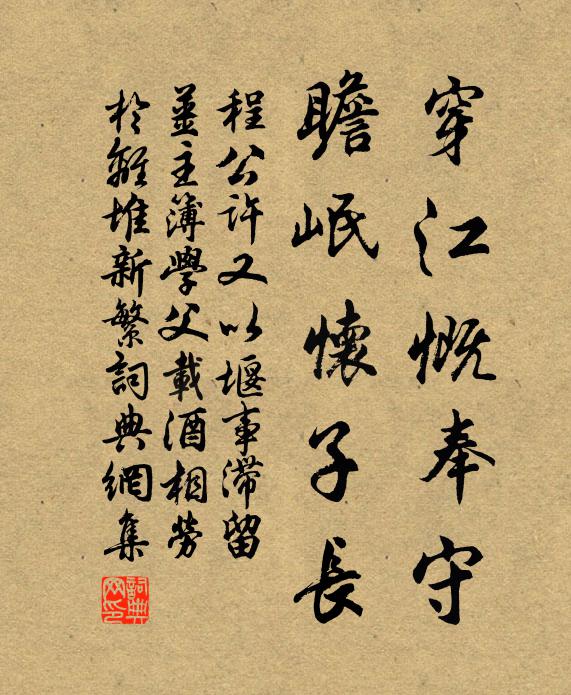 穿江慨奉守
瞻岷懷子長
程公許又以堰事滯留
薑主簿學父載酒相勞
於離堆新繁詞典網集
詞典网印